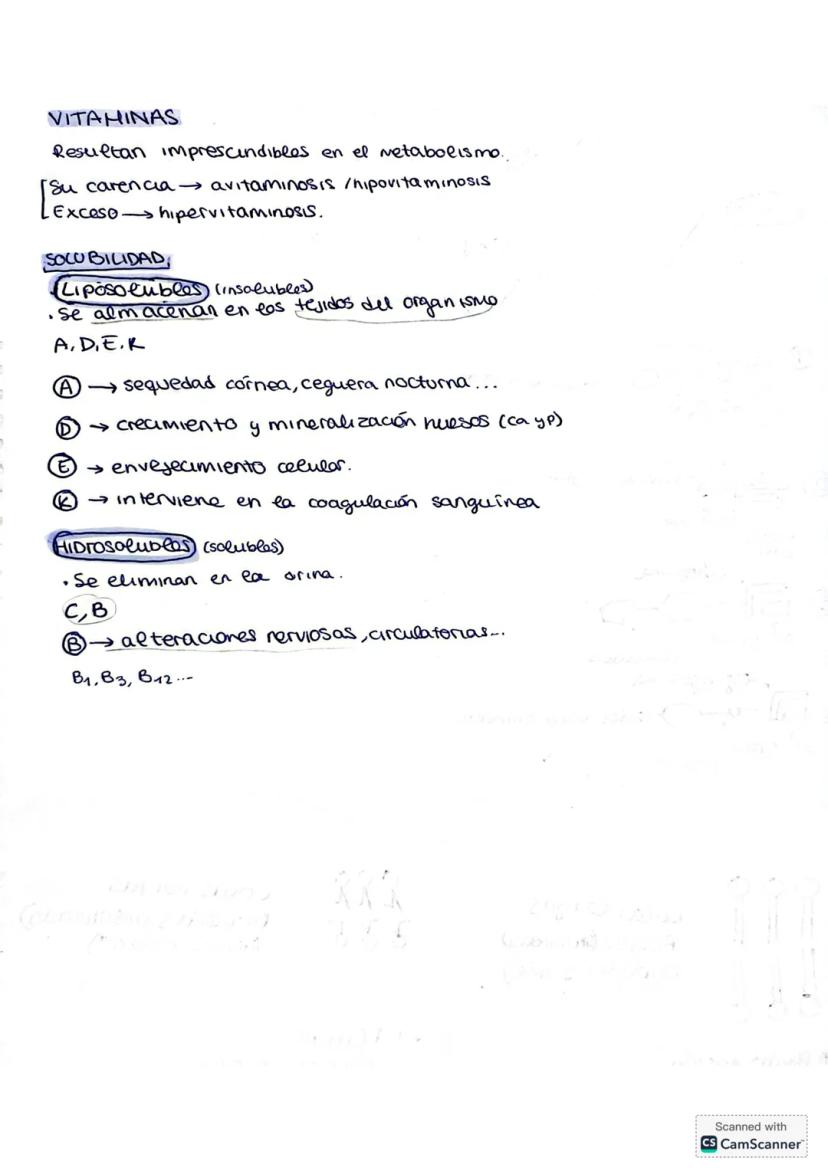 VITAMINAS
Resultan imprescindibles en el metabolismo.
Su carencia → avitaminosis /hipovitaminosis
Exceso → hipervitaminosis.
SOLUBILIDAD
Liposolubles (insolubles)
. Se almacenan en los tejidos del organismo
A, D, E, K
A → sequedad córnea, ceguera nocturna...
D → crecimiento y mineralización huesos (ca y p)
E → envejecimiento celular.
K → interviene en la coagulación sanguínea
Hidrosolubles (solubles)
. Se eliminan en la orina.
C, B
B → alteraciones nerviosas, circulatorias...
B1, B3, B12...
Scanned with
CS CamScanner